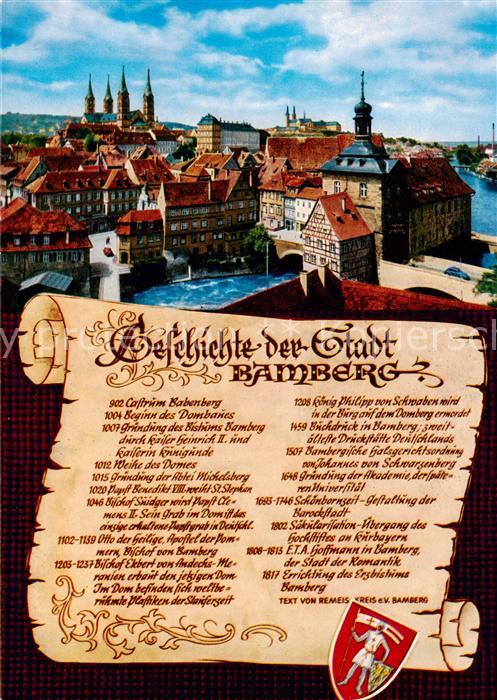 Geschichte der Stadt
BAMBERG
902 Castrum Babenberg
1004 Beginn des Dombaues
1007 Gründung des Bistums Bamberg
durch Kaiser Heinrich II. und
Kaiserin Kunigunde
1012 Weihe des Domes
1015 Gründung der Abtei Michelsberg
1020 Papst Benedikt VIII. weiht St. Stephan
1046 Bischof Suidger wird Papst Cle-
mens II. Sein Grab im Dom ist das
einzige erhaltene Papstgrab in Deutschl.
1102-1139 Otto der Heilige, Apostel der Pom-
mern, Bischof von Bamberg
1203-1237 Bischof Ekbert von Andechs-Me-
ranien erbaut den jetzigen Dom
Im Dom befinden sich weltbe-
rühmte Plastiken der Stauferzeit
1208 König Philipp von Schwaben wird
in der Burg auf dem Domberg ermordet
1459 Buchdruck in Bamberg, zweit-
älteste Druckstätte Deutschlands
1507 Bambergische Halsgerichtsordnung
von Johannes von Schwarzenberg
1648 Gründung der Akademie, der späte-
ren Universität
1693-1746 Schönbornzeit - Gestaltung der
Barockstadt
1802 Säkularisation - Übergang des
Hochstiftes an Kurbayern
1808-1813 E.T.A. Hoffmann in Bamberg,
der Stadt der Romantik
1817 Errichtung des Erzbistums
Bamberg
TEXT VON REMEIS-KREIS e.V. BAMBERG